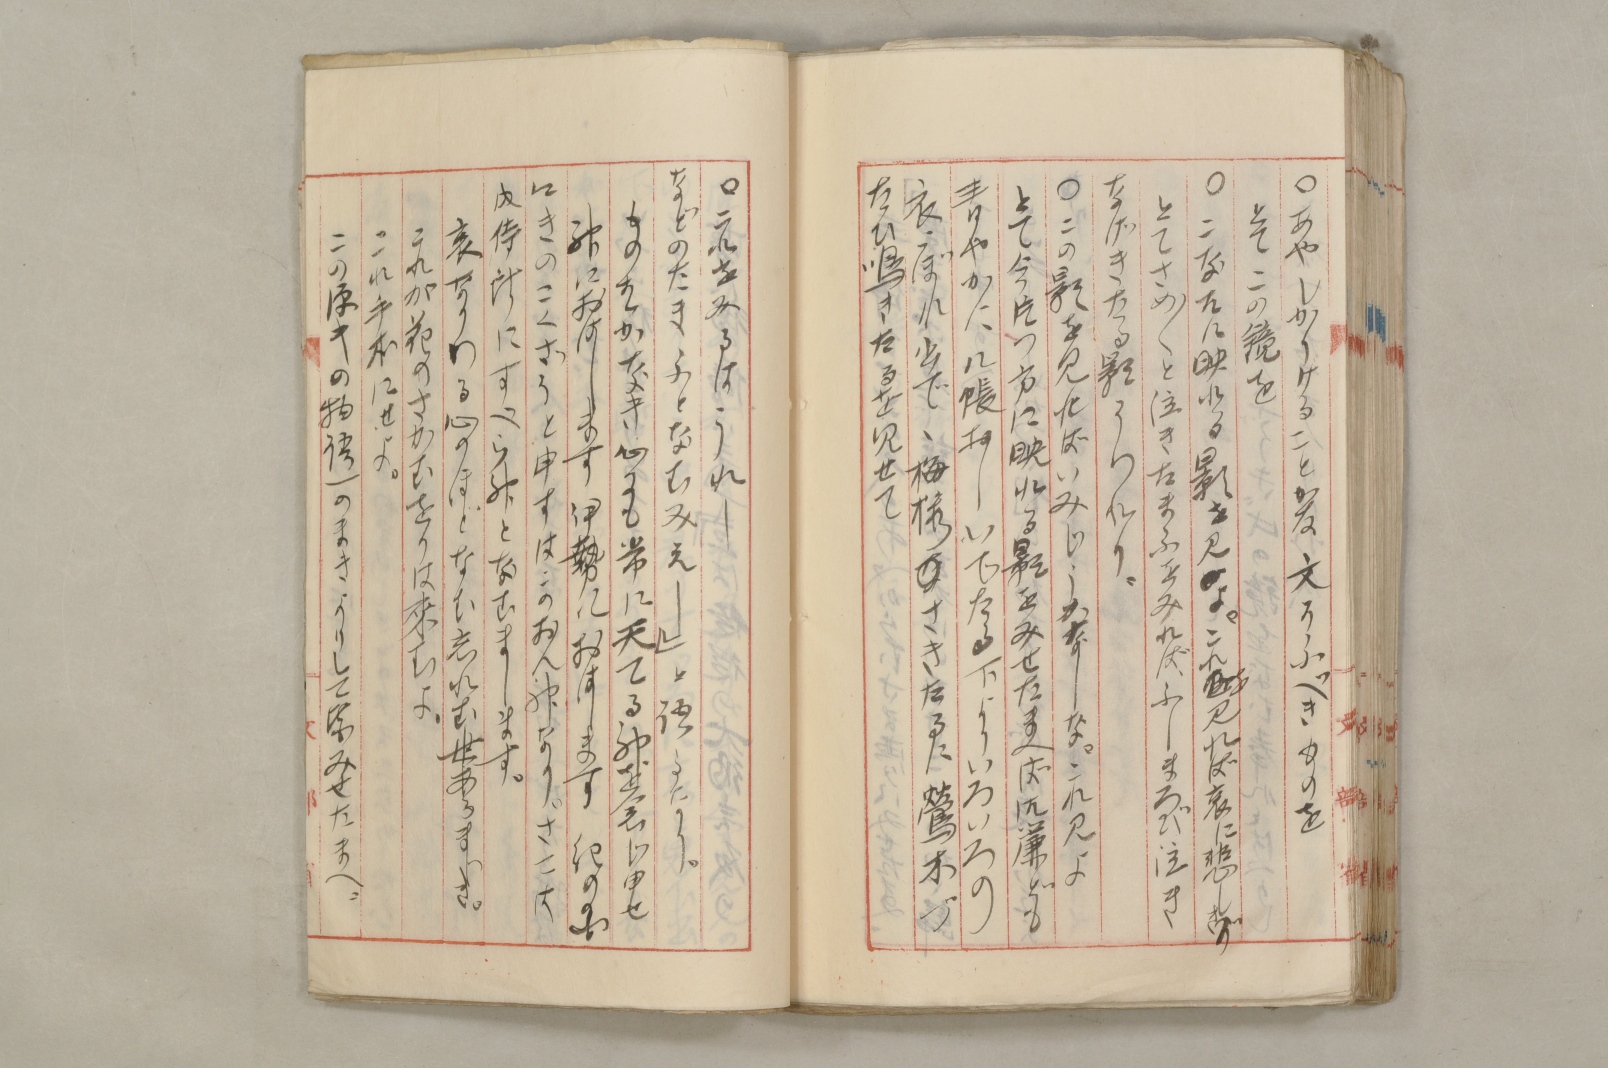 ○あやしかりけることかな 文そふべきものを
とて この鏡を
○こなたに映れる影を見よ。これ見れば哀に悲しきぞ
とてさめ〴〵と泣きたまふをみればふしまろび泣き
なげきたる影うつれり。
○この影を見ればいみじうかなしな。これ見よ
とて今片つ方に映れる影をみせたまへば几簾ども
青やかに几帳おしいでたる下よりいろいろの
衣こぼれ出で、梅桜のさきたるに鶯木づ
たひ鳴きたるを見せて
○これをみるはうれし
などのたまふとなむみえし」と語るなり。
ものはかなき心にも常に天てる神を念じ申せ
神におはします 伊勢におはします 紀の国
にきのこくざうと申すはこのおん神なり。さては
内侍所にすべら神となむまします。
哀なりわる心のほどなむ忘れむ世あるまじき。
これが花のさかむをりは来むよ。
これ手本にせよ。
この源氏の物語一のまきよりして皆みせたまへ。
文 部 省